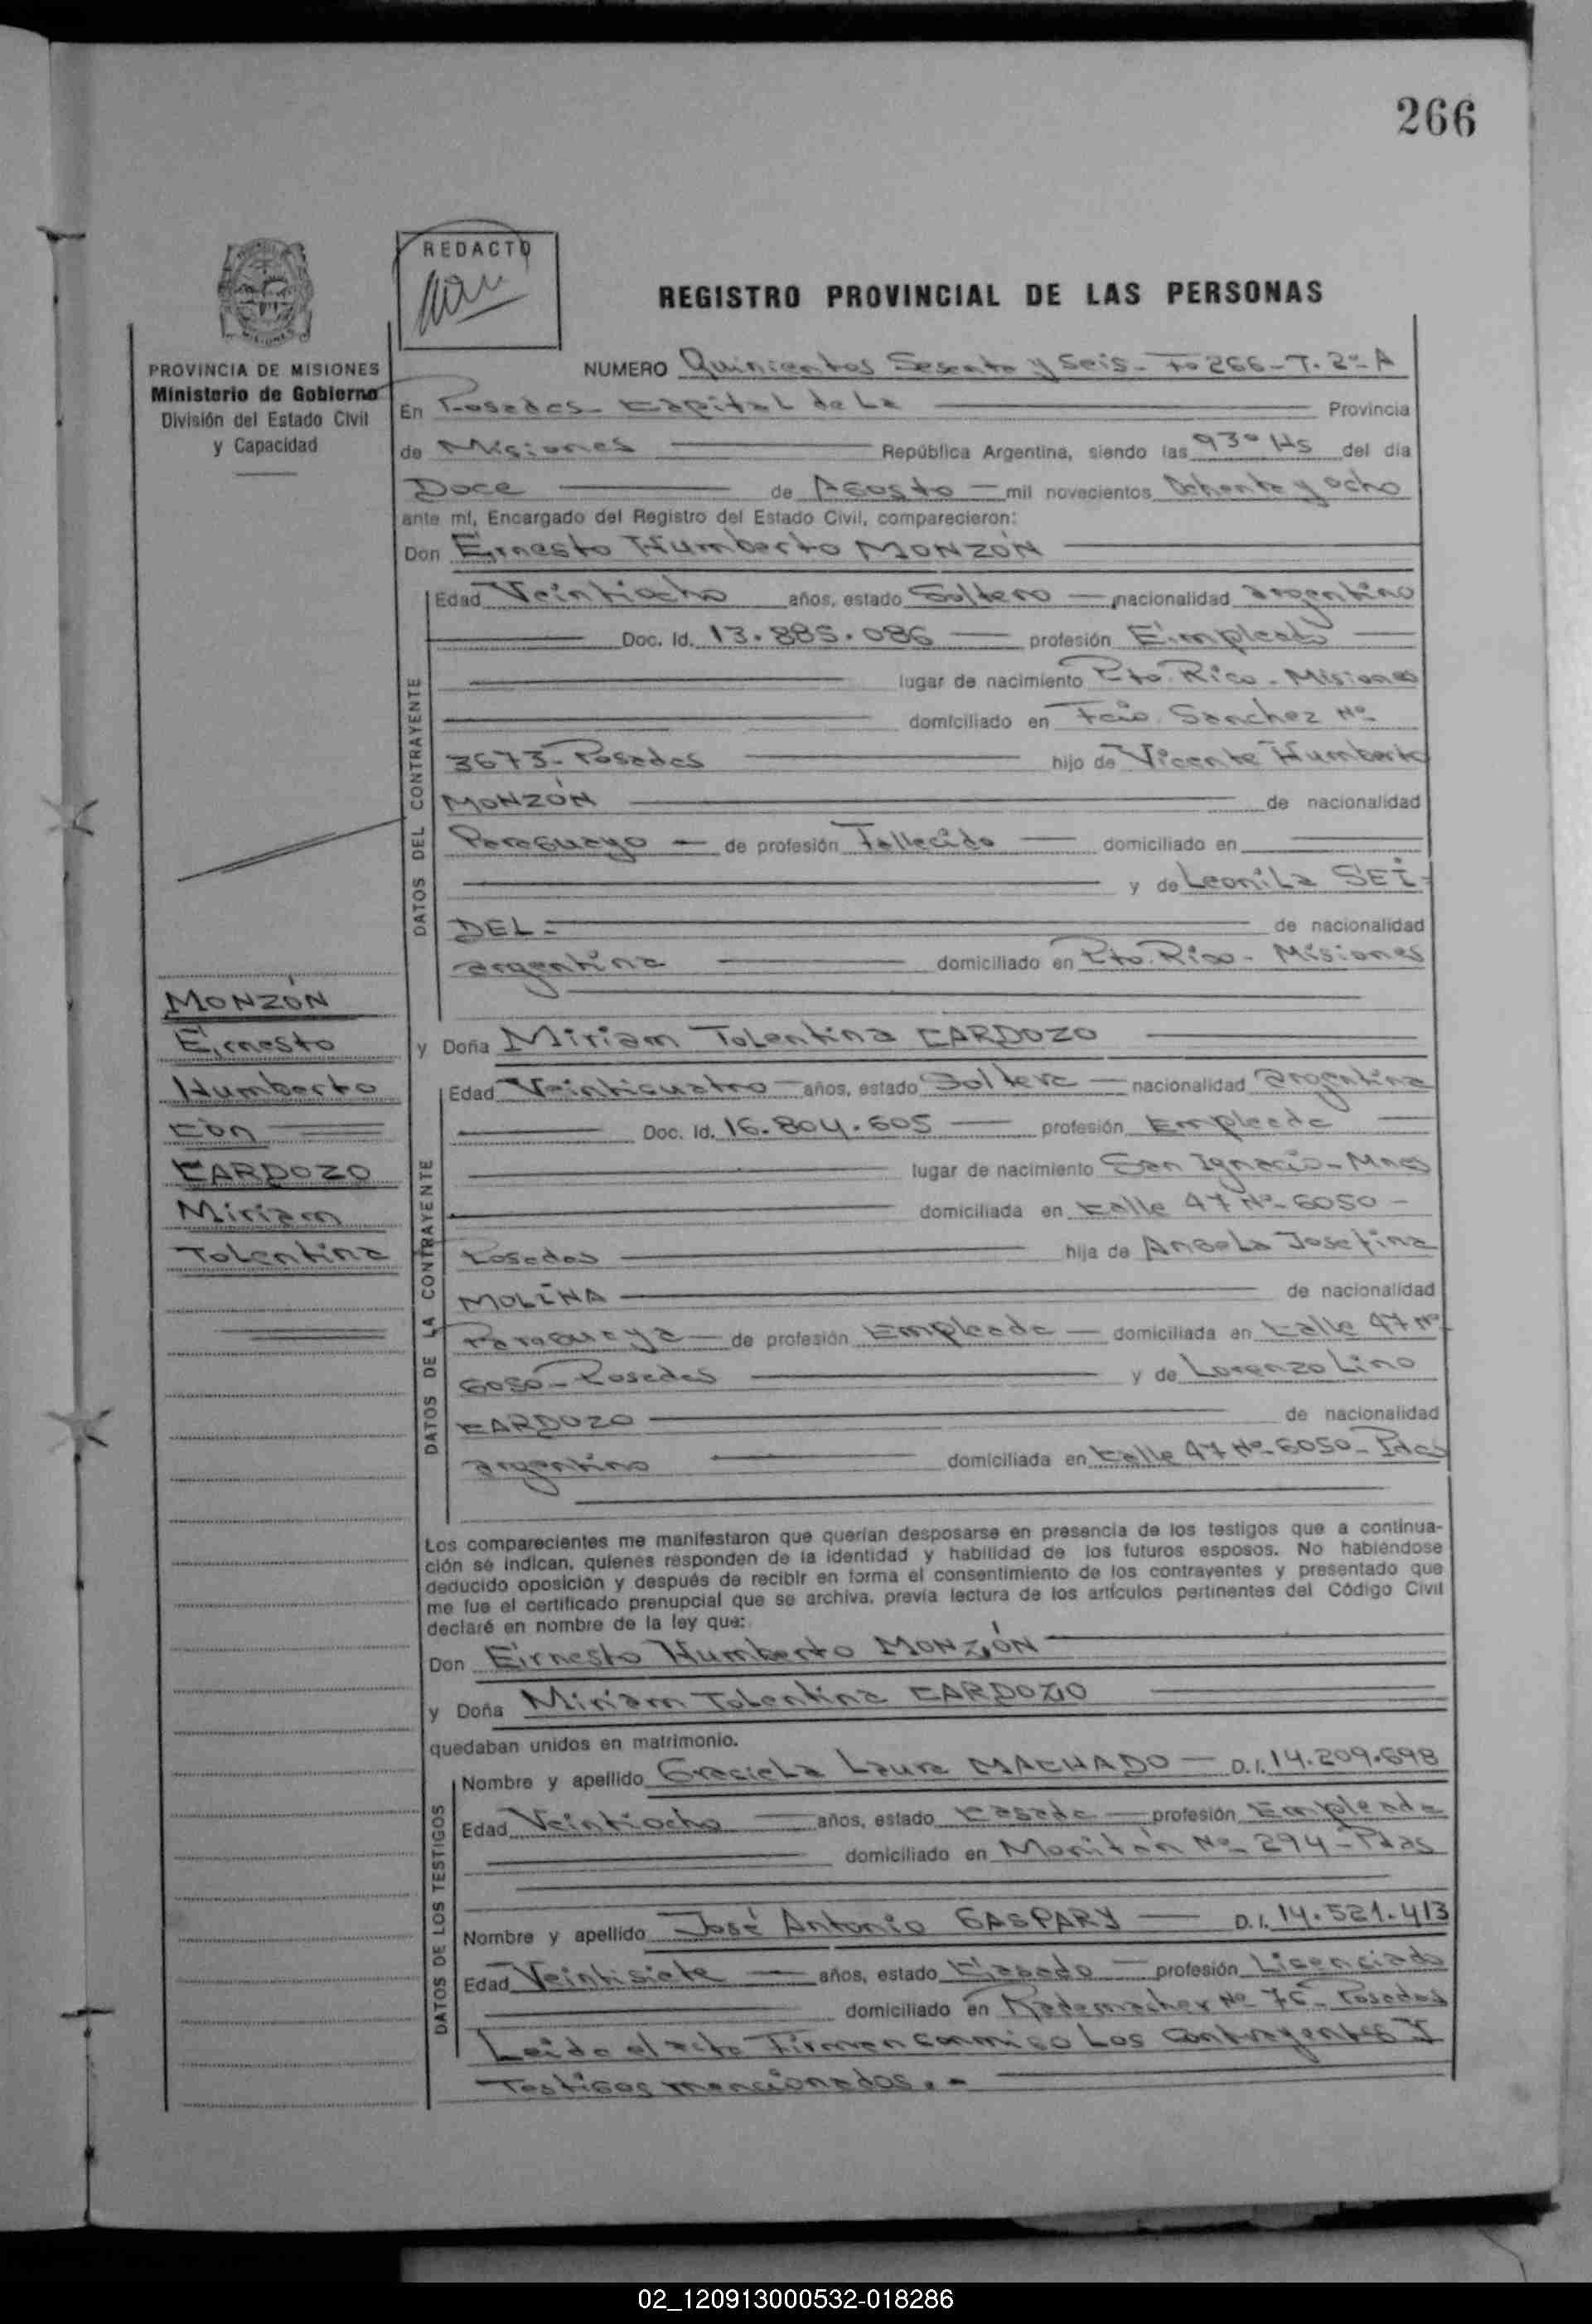 266
REDACTO
REGISTRO PROVINCIAL DE LAS PERSONAS
PROVINCIA DE MISIONES
Ministerio de Gobierno
División del Estado Civil
y Capacidad
NUMERO Quinientos Sesenta y Seis - Fº 266 - T. 2º - A
En Posadas Capital de La Provincia
de Misiones República Argentina, siendo las 930 Hs del día
Doce de Agosto mil novecientos Ochenta y ocho
ante mí, Encargado del Registro del Estado Civil, comparecieron:
Don Ernesto Humberto MONZÓN
DATOS DEL CONTRAYENTE
Edad Veintiocho años, estado Soltero nacionalidad argentino
Doc. Id. 13.885.086 profesión Empleado
lugar de nacimiento Pto. Rico - Misiones
domiciliado en Fcio. Sanchez Nº
3673 - Posadas hijo de Vicente Humberto
MONZÓN de nacionalidad
Paraguayo de profesión Fallecido domiciliado en
y de Leonila SEI-
DEL - de nacionalidad
argentina domiciliado en Pto. Rico - Misiones
MONZÓN
Ernesto
Humberto
con
CARDOZO
Miriam
Tolentina
y Doña Miriam Tolentina CARDOZO
DATOS DE LA CONTRAYENTE
Edad Veinticuatro años, estado Soltera nacionalidad argentina
Doc. Id. 16.804.605 profesión Empleada
lugar de nacimiento San Ignacio - Mnes
domiciliada en Calle 47 Nº 6050 -
Posadas hija de Angela Josefina
MOLINA de nacionalidad
Paraguaya de profesión Empleada domiciliada en Calle 47 Nº
6050 - Posadas y de Lorenzo Lino
CARDOZO de nacionalidad
argentino domiciliada en Calle 47 Nº 6050 - Pdas
Los comparecientes me manifestaron que querían desposarse en presencia de los testigos que a continua-
ción se indican, quienes responden de la identidad y habilidad de los futuros esposos. No habiéndose
deducido oposición y después de recibir en forma el consentimiento de los contrayentes y presentado que
me fue el certificado prenupcial que se archiva, previa lectura de los artículos pertinentes del Código Civil
declaré en nombre de la ley que:
Don Ernesto Humberto MONZÓN
y Doña Miriam Tolentina CARDOZO
quedaban unidos en matrimonio.
DATOS DE LOS TESTIGOS
Nombre y apellido Graciela Laura MACHADO D.I. 14.209.698
Edad Veintiocho años, estado Casada profesión Empleada
domiciliado en Nº 294 - Pdas
Nombre y apellido José Antonio GASPARY D.I. 14.521.413
Edad Veintisiete años, estado Casado profesión Licenciado
domiciliado en Rademacher Nº 76 - Posadas
Leida el acta Firman conmigo Los Contrayentes y
Testigos mencionados. -
02_120913000532-018286